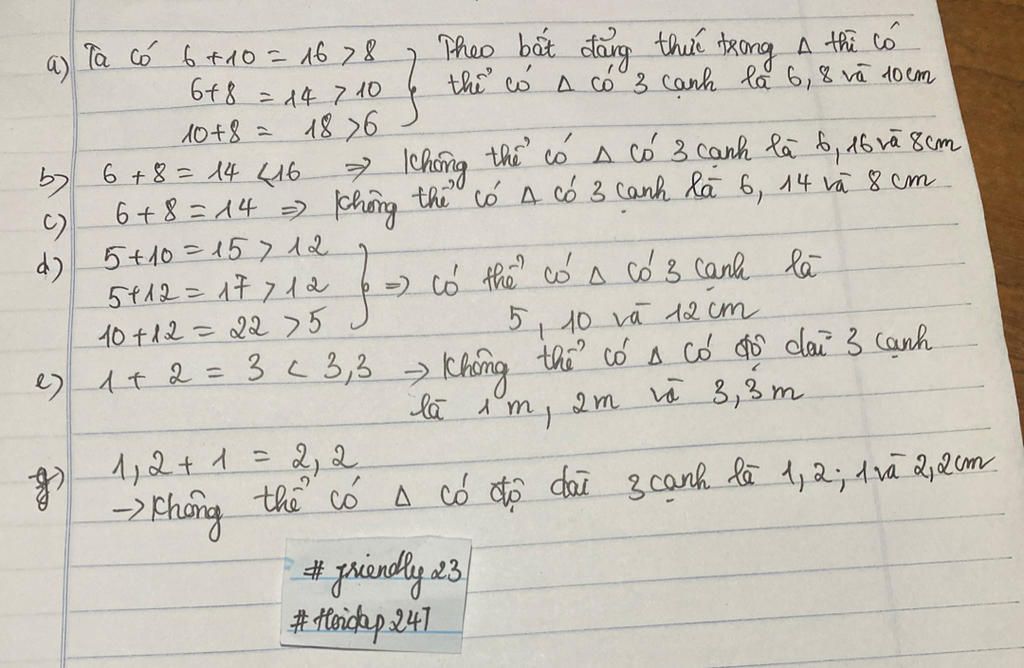 a) Ta có 6+10 = 16 > 8 } Theo bất đẳng thức trong Δ thì có
6+8 = 14 > 10 thể có Δ có 3 cạnh là 6, 8 và 10cm
10+8 = 18 > 6
b) 6 + 8 = 14 < 16 => Không thể có Δ có 3 cạnh là 6, 16 và 8cm
c) 6 + 8 = 14 => Không thể có Δ có 3 cạnh là 6, 14 và 8 cm
d) 5+10 = 15 > 12
5+12 = 17 > 12 } => có thể có Δ có 3 cạnh là
10+12 = 22 > 5 5, 10 và 12 cm
e) 1 + 2 = 3 < 3,3 -> Không thể có Δ có độ dài 3 cạnh
là 1 m, 2m và 3,3 m
g) 1,2 + 1 = 2,2
-> Không thể có Δ có độ dài 3 cạnh là 1,2; 1 và 2,2cm
# friendly 23
# Hoidap 247